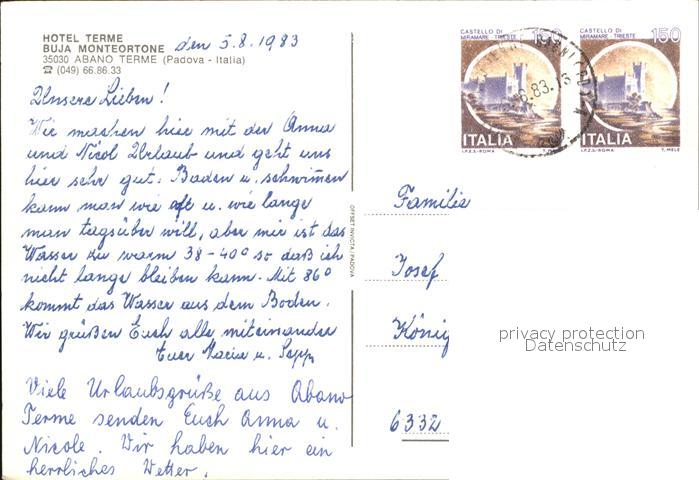 HOTEL TERME
BUJA MONTEORTONE
35030 ABANO TERME (Padova - Italia)
☎ (049) 66.86.33
den 5.8.1983
Unsere Lieben!
Wir machen hier mit der Anna
und Nicol Urlaub und geht uns
hier sehr gut. Baden u. schwimen
kann man wie oft u. wie lange
man tagsüber will, aber mir ist das
Wasser zu warm 38-40° so daß ich
nicht lange bleiben kann. Mit 86°
kommt das Wasser aus dem Boden.
Wir grüßen Euch alle miteinander
Euer Maria u. Sepp
Viele Urlaubsgrüße aus Abano
Terme senden Euch Anna u.
Nicole. Wir haben hier ein
herrliches Wetter.
OFFSET INVICTA-PADOVA
CASTELLO DI
MIRAMARE - TRIESTE
150
ITALIA
I.P.Z.S.-ROMA
CASTELLO DI
MIRAMARE - TRIESTE
150
ITALIA
I.P.Z.S.-ROMA T. MELE
Familie
Josef
König
6332
privacy protection
Datenschutz